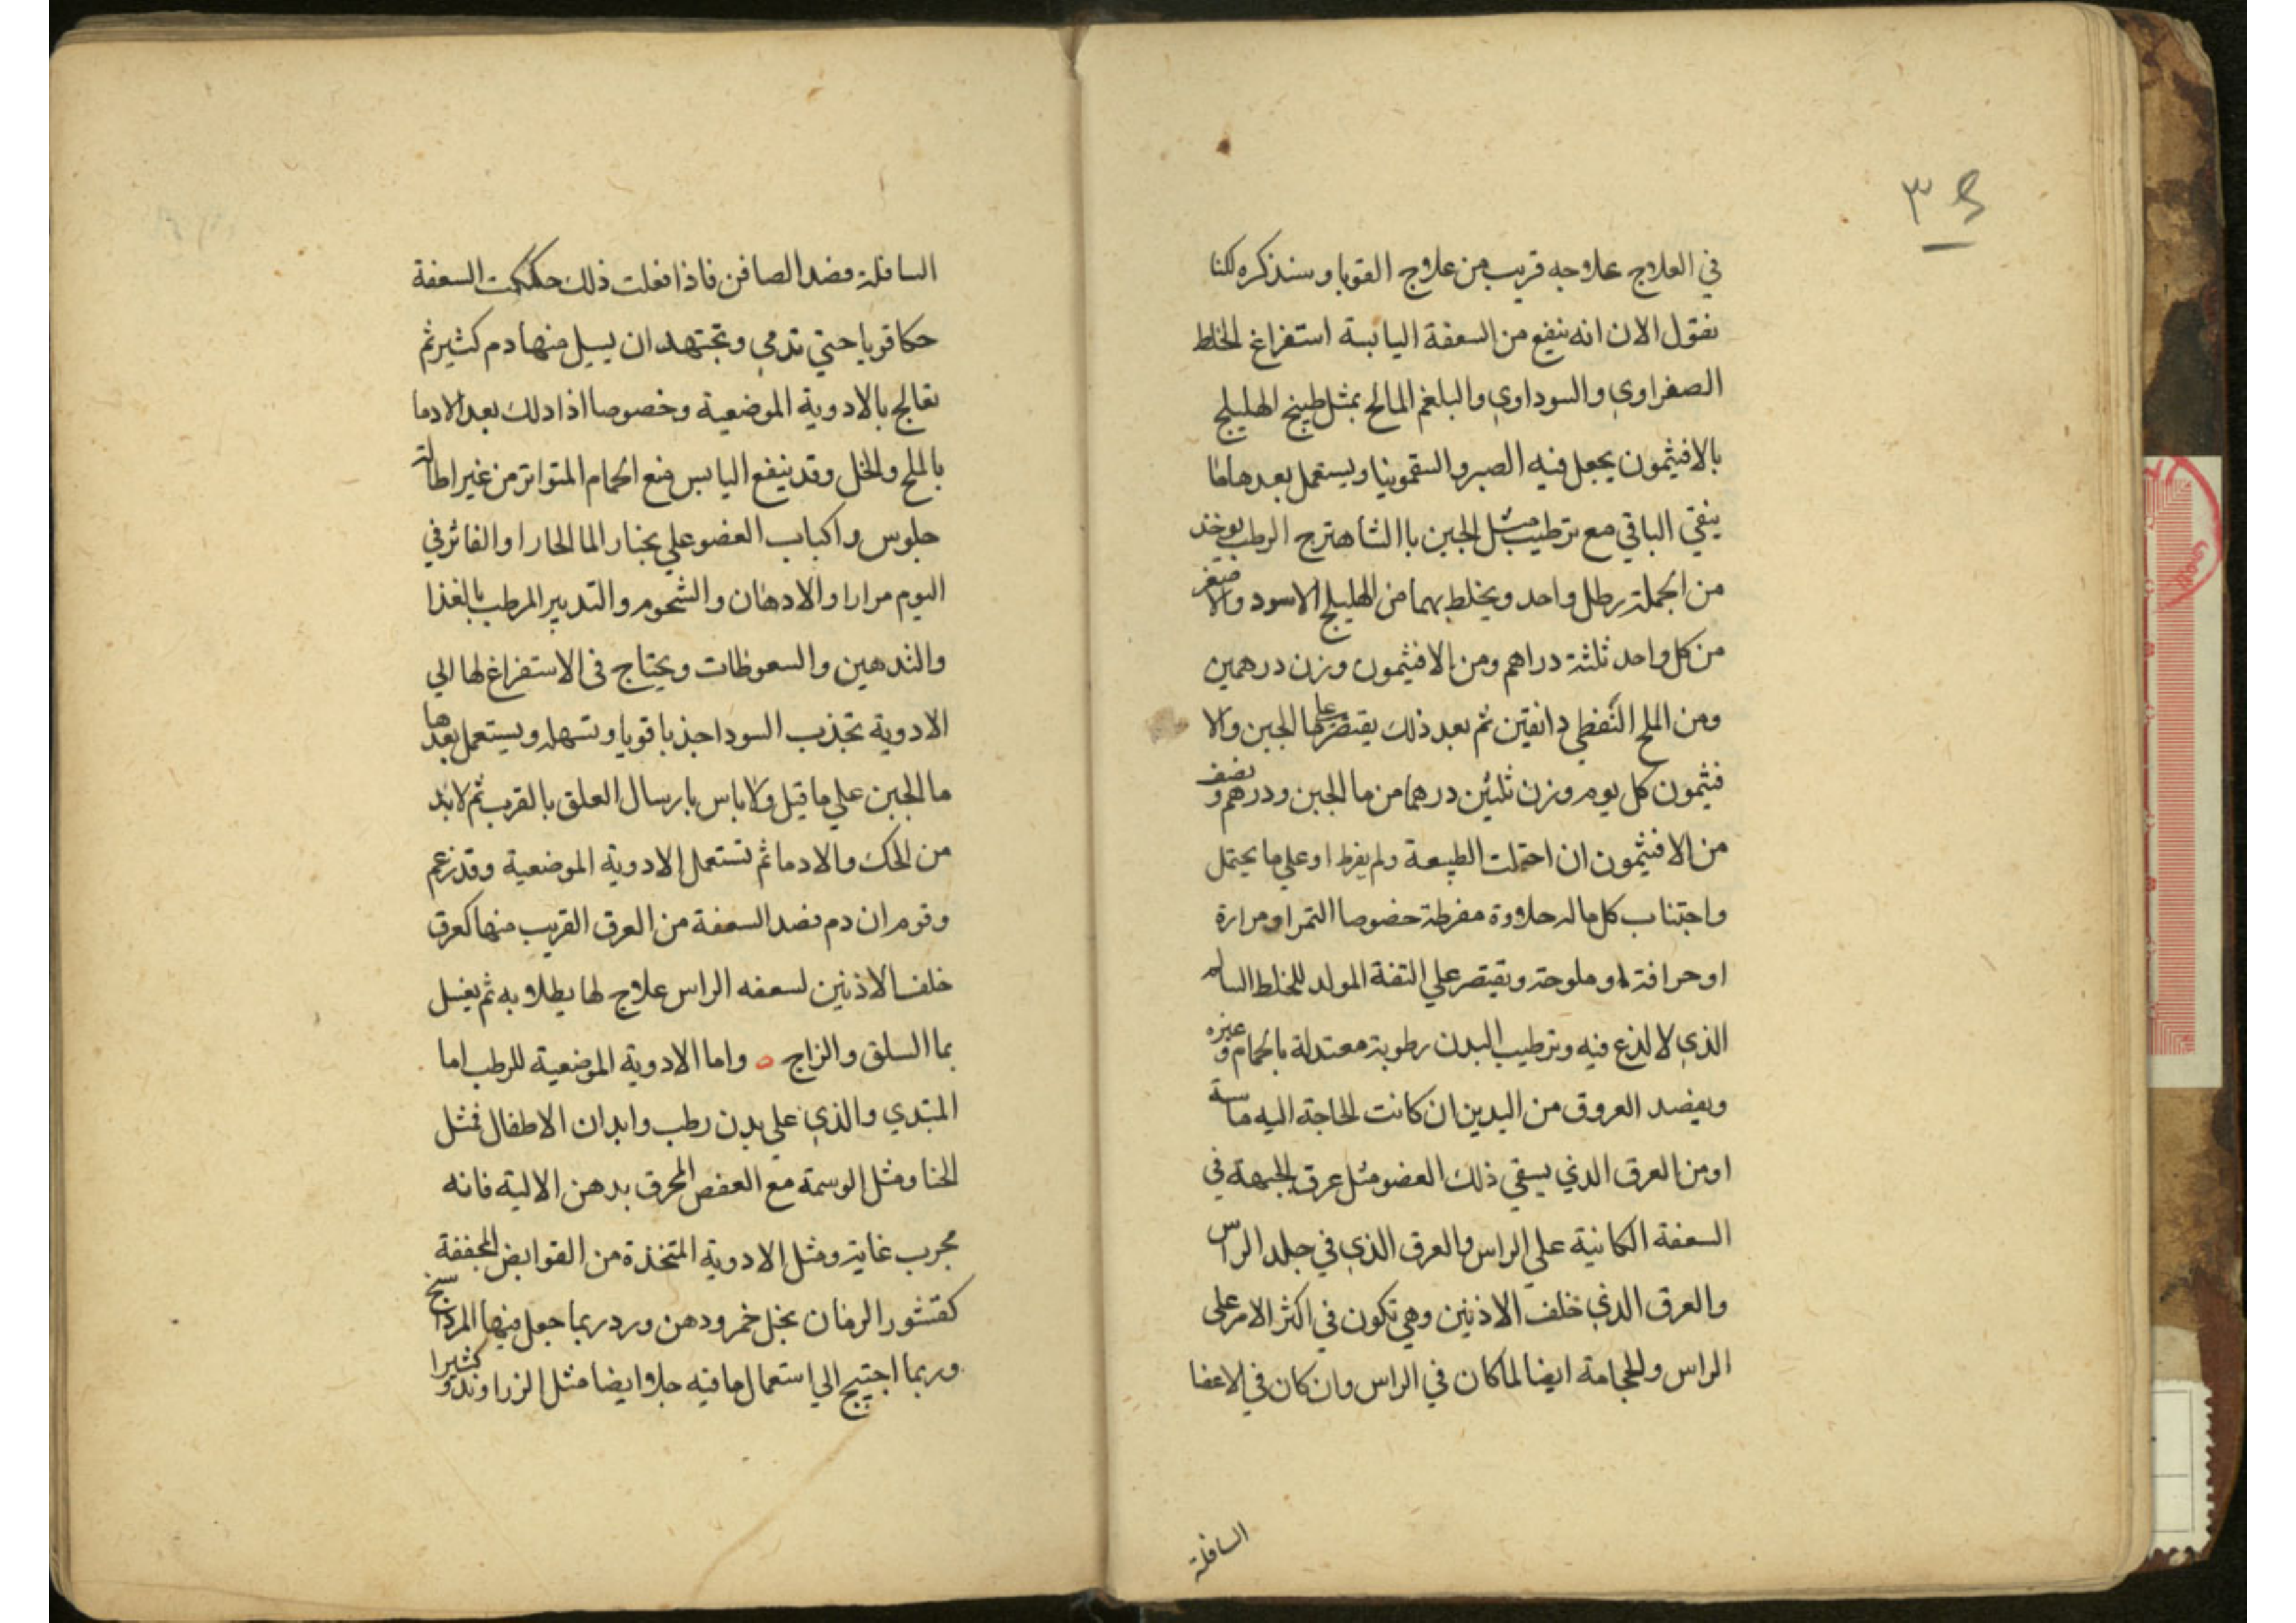 ٣
في العلاج علاجه قريب من علاج القوبا وسنذكره لكنا
نقول الان انه ينفع من السعفة اليابسة استفراغ الخلط
الصفراوي والسوداوي والبلغم المالح بمثل طبيخ الهليلج
بالافيثمون يجعل فيه الصبر والسقمونيا ويستعمل بعدها ما
ينقي الباقي مع ترطيب مثل الجبن باالشاهترج الرطب يوخذ
من الجملة رطل واحد ويخلط بهما من الهليلج الاسود والاصفر
من كل واحد ثلثة دراهم ومن الافيثمون وزن درهمين
ومن الملح النفطي دانقين ثم بعد ذلك يقتصر علي ما الجبن والا
فيثمون كل يوم وزن ثلثين درهما من ما الجبن ودرهم ونصف
من الافيثمون ان احتملت الطبيعة ولم يفرط او علي ما يحتمل
واجتناب كل ماله حلاوة مفرطة خصوصا التمر او مرارة
او حرافة او ملوحة ويقتصر علي التفة المولد للخلط السالم
الذي لا لذع فيه وترطيب البدن رطوبة معتدلة بالحمام وغيره
ويفصد العروق من اليدين ان كانت الحاجة اليه ماسة
او من العرق الذي يسقي ذلك العضو مثل عرق الجبهة في
السعفة الكانية علي الراس والعرق الذي في جلد الراس
والعرق الذي خلف الاذنين وهي تكون في اكثر الامر علي
الراس وللحجامة ايضا لما كان في الراس وان كان في الاعضا
السافلة
السافلة فصد الصافن فاذا فعلت ذلك حككت السعفة
حكا قويا حتي تدمي وتجتهد ان يسيل منها دم كثير ثم
تعالج بالادوية الموضعية وخصوصا اذا دلك بعد الادما
بالملح والخل وقد ينفع اليابس منع الحمام المتواتر من غير اطالة
جلوس واكباب العضو علي بخار الما الحار او الفاتر في
اليوم مرارا والادهان والشحوم والتدبير المرطب بالغذا
والتدهين والسعوطات ويحتاج في الاستفراغ لها الي
الادوية تجذب السودا جذبا قويا وتسهله ويستعمل بعدها
ما الجبن علي ما قيل ولا باس بارسال العلق بالقرب ثم لا بد
من الحك والادما ثم تستعمل الادوية الموضعية وقد زعم
وقوم ان دم فصد السعفة من العرق القريب منها كعرق
خلف الاذنين لسعفه الراس علاج لها يطلا به ثم يغسل
بما السلق والزاج ه واما الادوية الموضعية للرطب اما
المبتدي والذي علي بدن رطب وابدان الاطفال فمثل
الحنا ومثل الوسمة مع العفص المحرق بدهن الالية فانه
مجرب غاية ومثل الادوية المتخذة من القوابض المجففة
كقشور الرمان بخل خمر ودهن ورد ربما جعل فيها المرداسنج
وربما احتيج الي استعمال ما فيه جلا ايضا مثل الزراوند وكثيرا